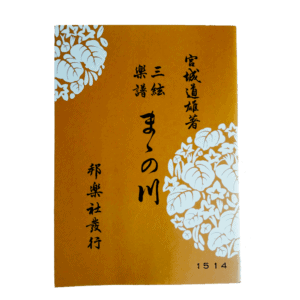 宮城道雄著
三絃
樂譜
まゝの川
邦樂社發行
1514